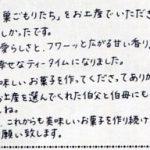 巣ごもりたち」をお土産でいただき
しかったです。
愛らしさと、フワーッと広がる甘い香り
幸せなティータイムになりました。
美味しいお菓子を作ってくださってありが
お土産を選んでくれた伯父と伯母にも
ね。
、これからも美味しいお菓子を作り続け
願い致します。